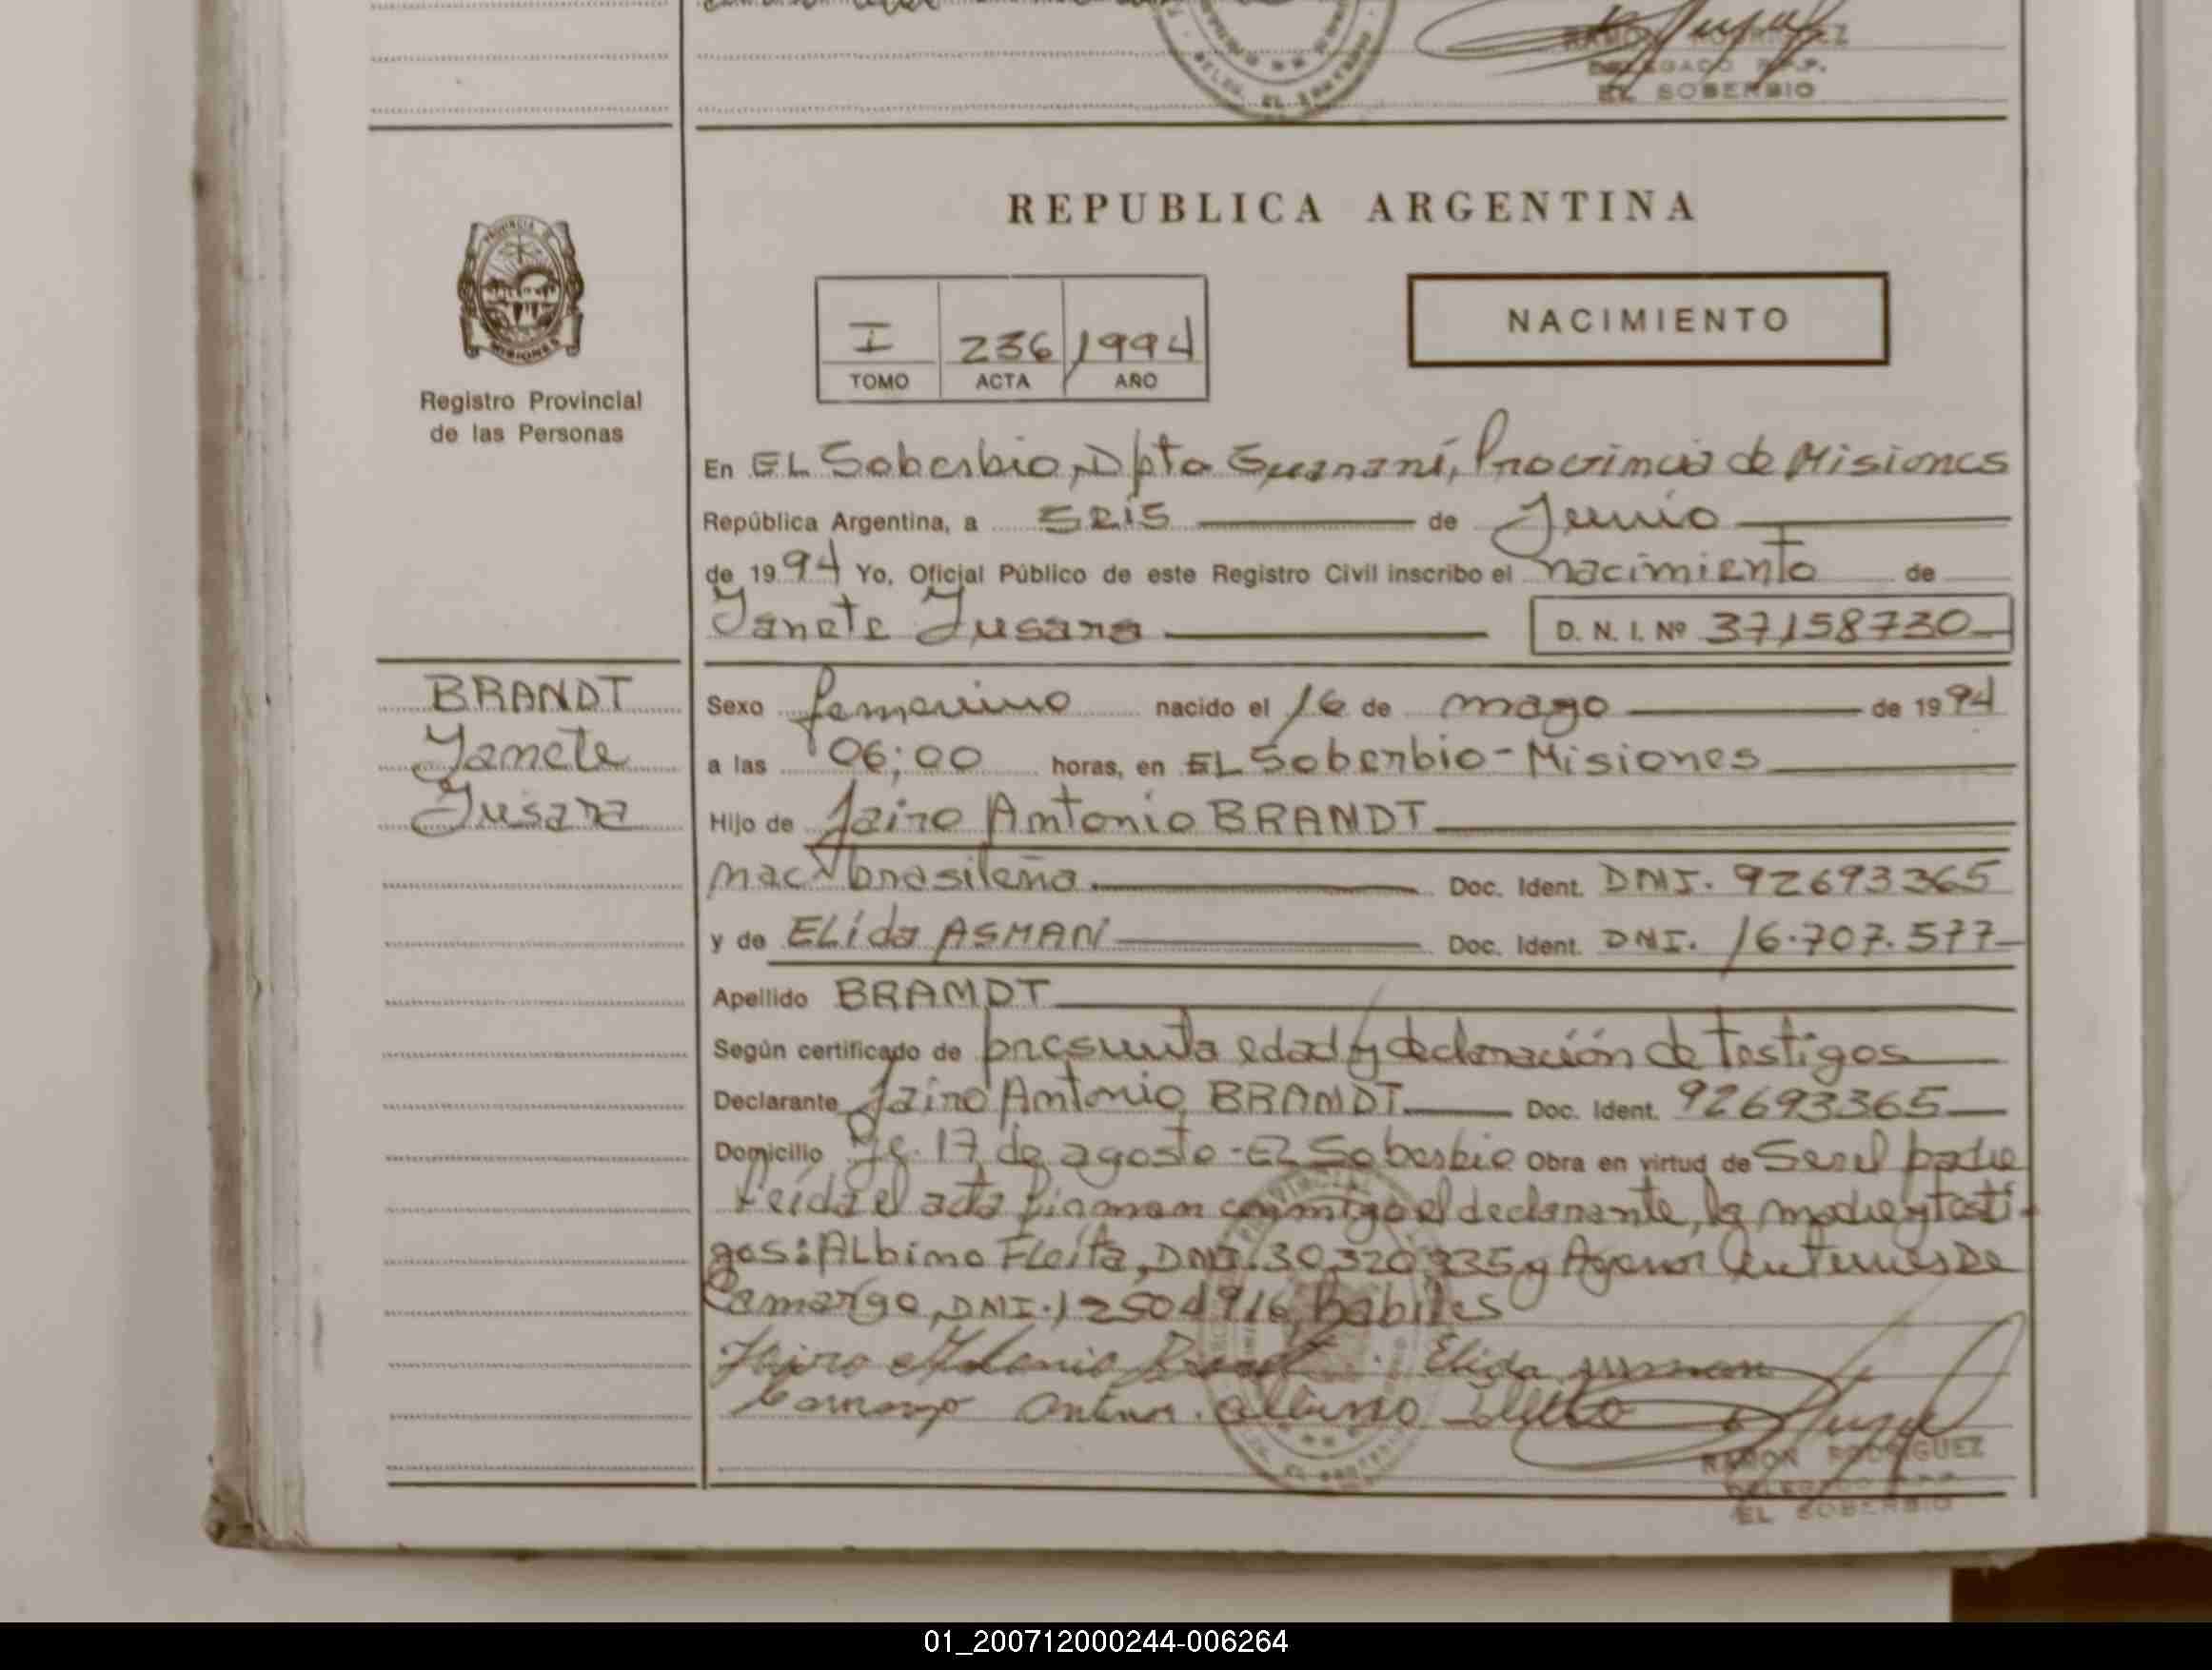 RAMON RODRIGUEZ
DELEGADO R.P.P.
EL SOBERBIO
REPUBLICA ARGENTINA
PROVINCIA DE
MISIONES
Registro Provincial
de las Personas
I 236 1994
TOMO ACTA AÑO
NACIMIENTO
En EL Soberbio, Dpto Guaraní, Provincia de Misiones
República Argentina, a seis de Junio
de 1994 Yo, Oficial Público de este Registro Civil inscribo el nacimiento de
Janete Jusara D. N. I. Nº 37158730
BRANDT
Janete
Jusara
Sexo femenino nacido el 16 de mayo de 1994
a las 06:00 horas, en EL Soberbio - Misiones
Hijo de Jairo Antonio BRANDT
nac brasileña Doc. Ident. DNI. 92693365
y de ELida ASMAN Doc. Ident. DNI. 16.707.577
Apellido BRANDT
Según certificado de presunta edad y declaración de testigos
Declarante Jairo Antonio BRANDT Doc. Ident. 92693365
Domicilio 17 de agosto - EL Soberbio Obra en virtud de Ser el padre
Leída el acta firman conmigo el declarante, la madre y testi-
gos: ALbino FLeita, DNI. 30.320.335 y Agenor De
Camargo, DNI. 12504916, habiles
Jairo Antonio Brandt Elida
Camargo Albino
RAMON RODRIGUEZ
EL SOBERBIO
01_200712000244-006264